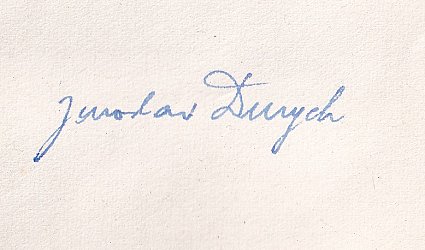 Jaroslav Durych